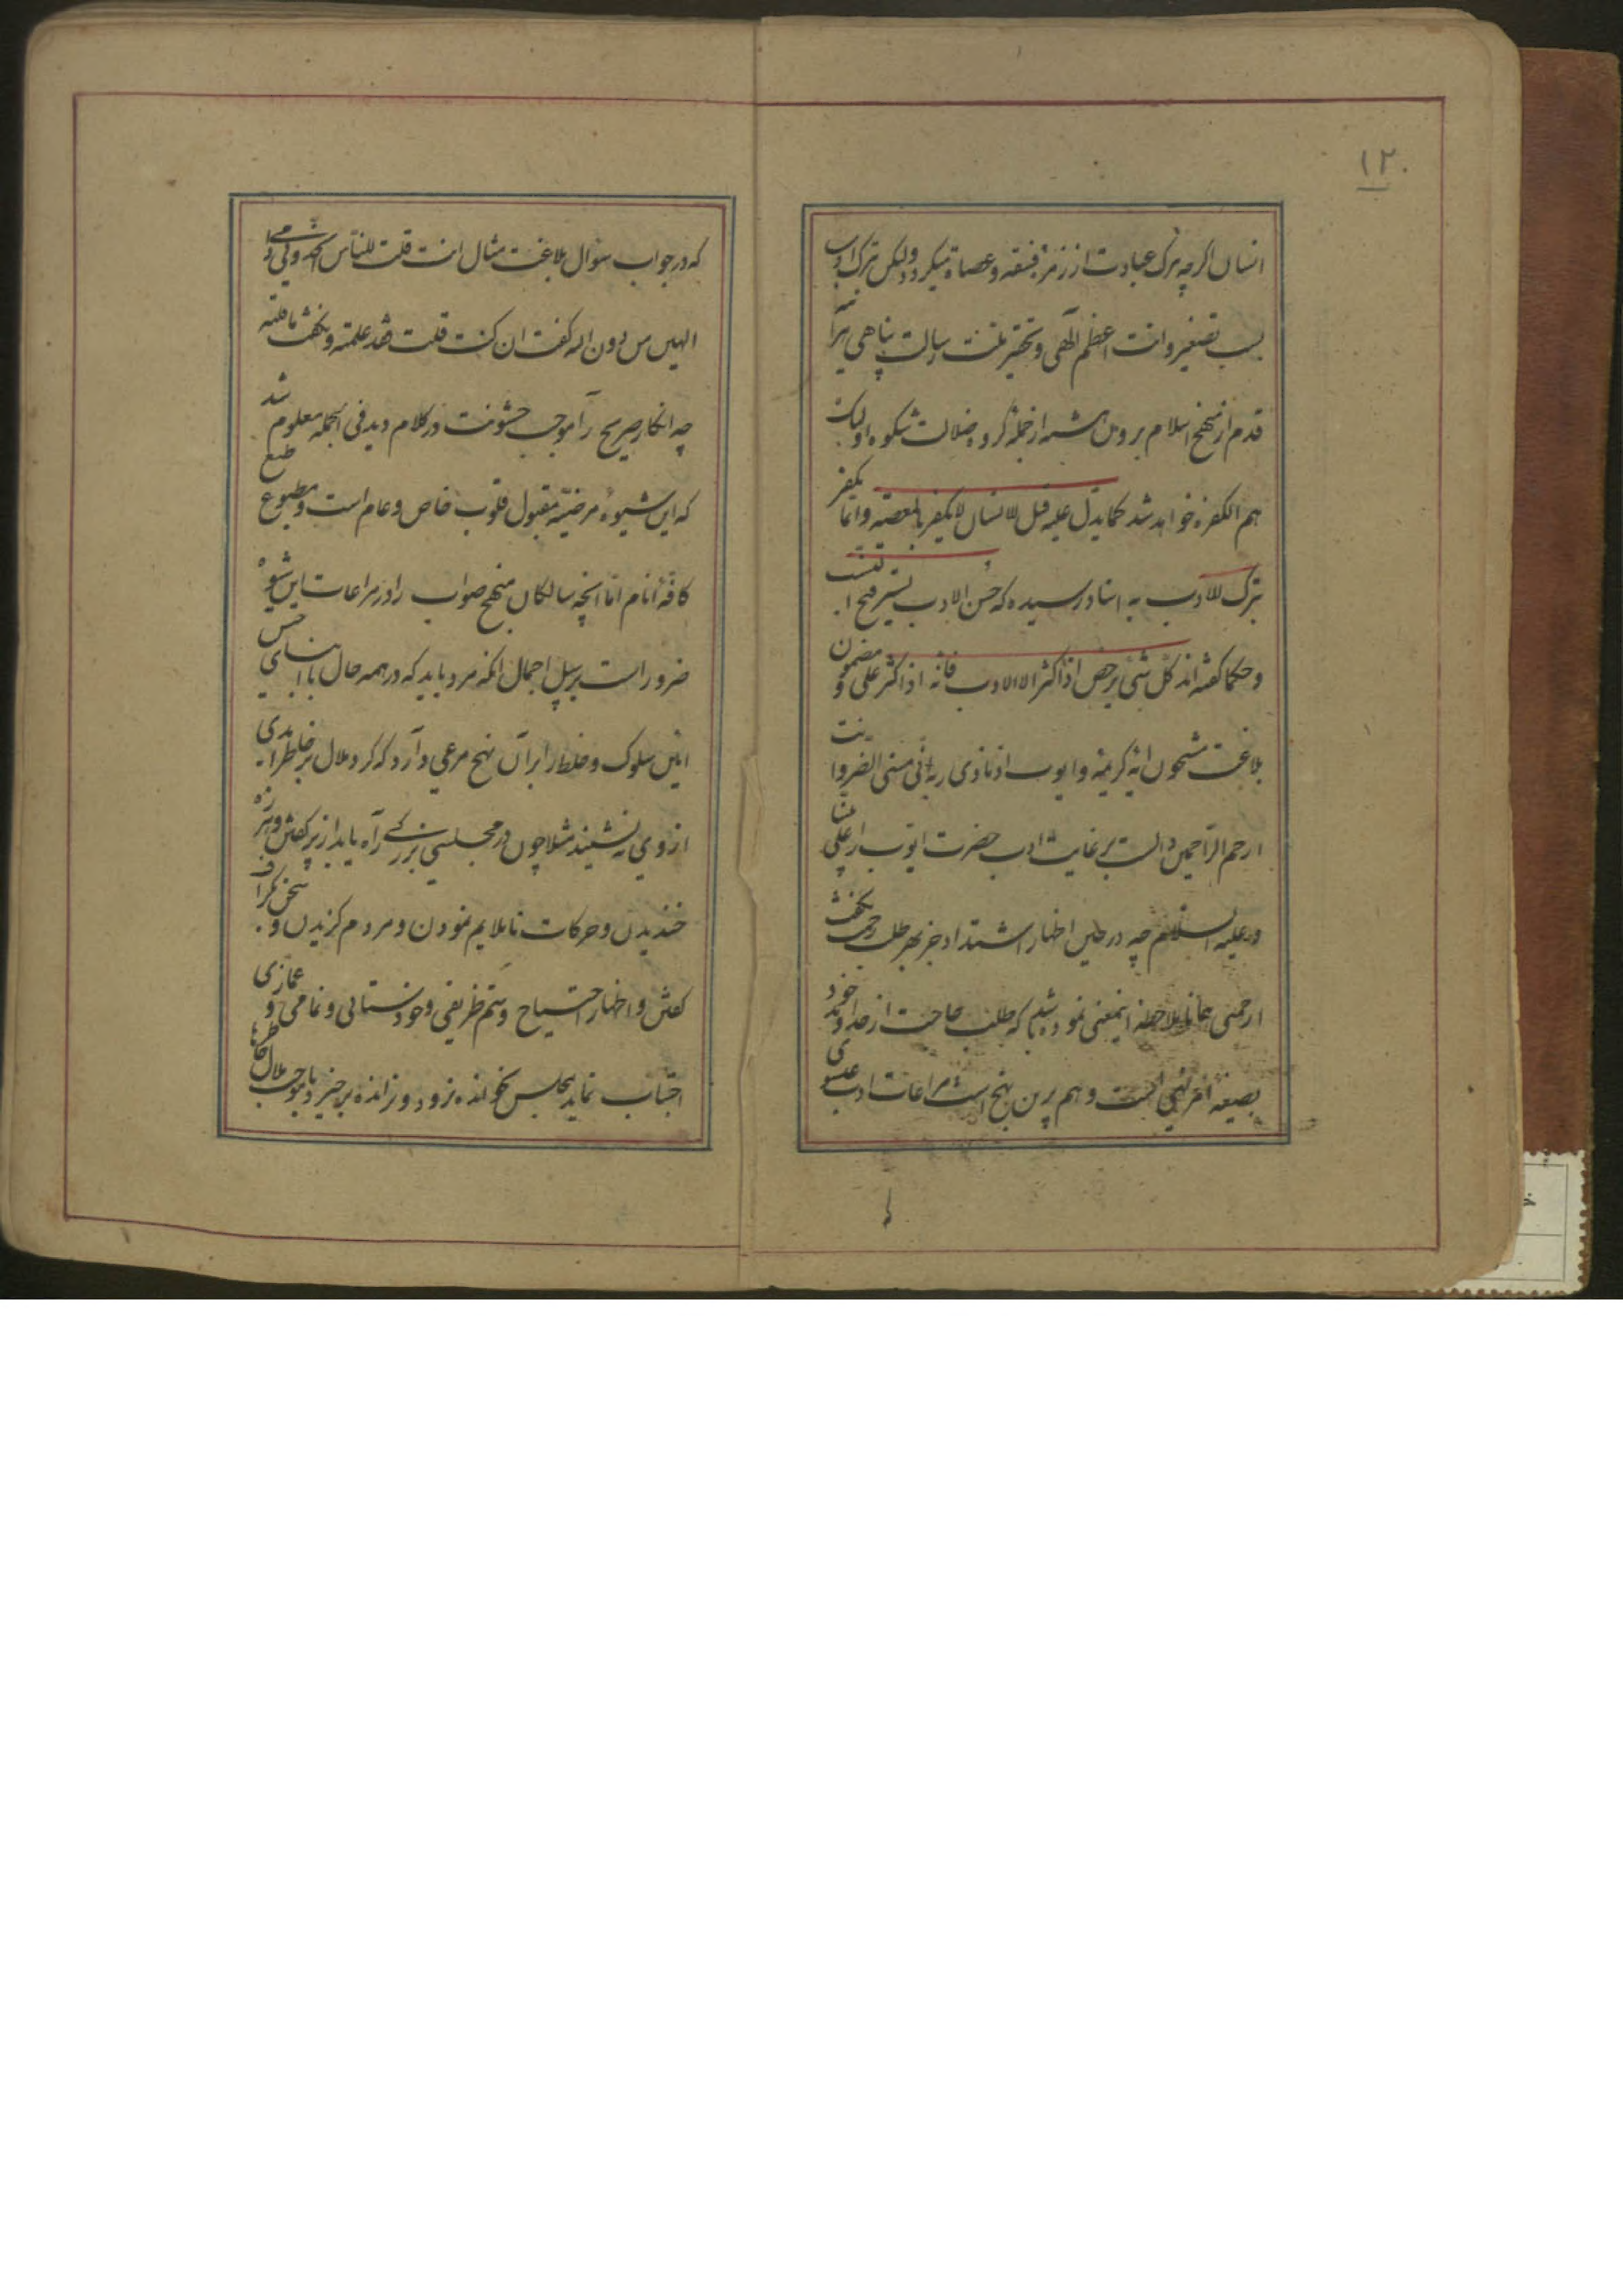 ۱۲۰
انسان اگرچه بترک عبادت از زمرهٔ فسقه و عصاة میگردد ولیکن بترک ادب
بسبب تصغیر وانت اعظم الهی و تحقیر ملت رسالت پناهی
قدم از نهج اسلام برون از جمله گروه ضلالت شکوه اولیک
هم الکفره خواهد شد کما یدل علیه قیل الانسان لا یکفر بالمعصیة وانما یکفر
بترک الادب به اسناد رسیده که حسن الادب یستر قبح
و حکما گفته‌اند کل شیٔ یرخص اذا کثر الا الادب فانه اذا کثر غلی و مضمون
بلاغت مشحون ایهٔ کریمه و ایوب اذ نادی ربه انی مسنی الضر وانت
ارحم الراحمین دالست بر غایت ادب حضرت ایوب علی نبینا
و علیه السلام چه در حین اظهار اشتداد جز بهر طلب رحمت نگفت
ارحمنی همانا ملاحظه اینمعنی نموده باشد که طلب حاجت از خداوند خود
بصیغه امر نهی است و هم برین نهج است مراعات ادب عیسوی
که در جواب سؤال بلاغت مثال انت قلت للناس اتخذونی و امی
الهین من دون الله گفت ان کنت قلته فقد علمته و نگفت ما قلته
چه انکار صریح را موجب خشونت در کلام دید فی الجمله معلوم شد
که این شیوهٔ مرضیه مقبول قلوب خاص و عام است و مطبوع طبع
کافهٔ انام اما انچه سالکان منهج صواب را در مراعات این شیوه
ضرور است بر سبیل اجمال انکه مرد باید که در همه حال با ابنای جنس
ایین سلوک و خلطه را بر آن نهج مرعی دارد که گرد ملال بر خاطر احدی
از وی نه نشیند مثلا چون در مجلسی بزرگی راه یابد از پر گفتن و هرزه
خندیدن و حرکات ناملایم نمودن و مردم گزیدن و سخن گزاف
گفتن و اظهار احتیاج و ستم ظریفی و خودستائی و نمامی و غمازی
اجتناب نماید بمجلس نخوانده نرود و نرانده برخیزد تا موجب ملال